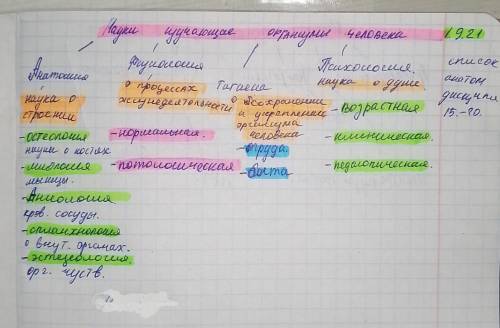 Науки изучающие организмы человека
1.9.21
список
анатом
дисципл
15.-20.
Анатомия
наука о
строении
-остеология
науки о костях
-миология
мышцы.
-Ангиология
кров. сосуды.
-спланхнология
о внут. органах.
-эстезеология
орг. чувств.
Физиология
о процессах
жизнедеятельности
-нормальная.
-потологическая
Гигиена
о сохранении
и укреплении
организма
человека
-Труда.
-быта
Психология.
наука о душе.
-возрастная
-клиническая.
-педагогическая.